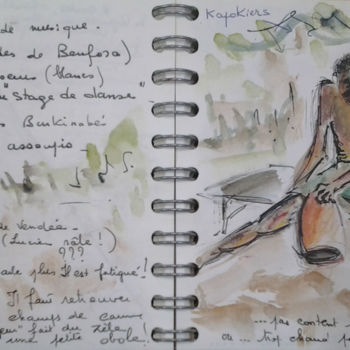 de musique.
des de Banfora)
(blancs)
"Stage de danse"
Burkinabé
assoupis
de vendée.
(Lucien râle !)
???
plus Il est fatigué !
Il faut retrouver
champs de canne
" fait du zèle
une petite obole !
Kapokiers
... pas content
ou ... trop chaud